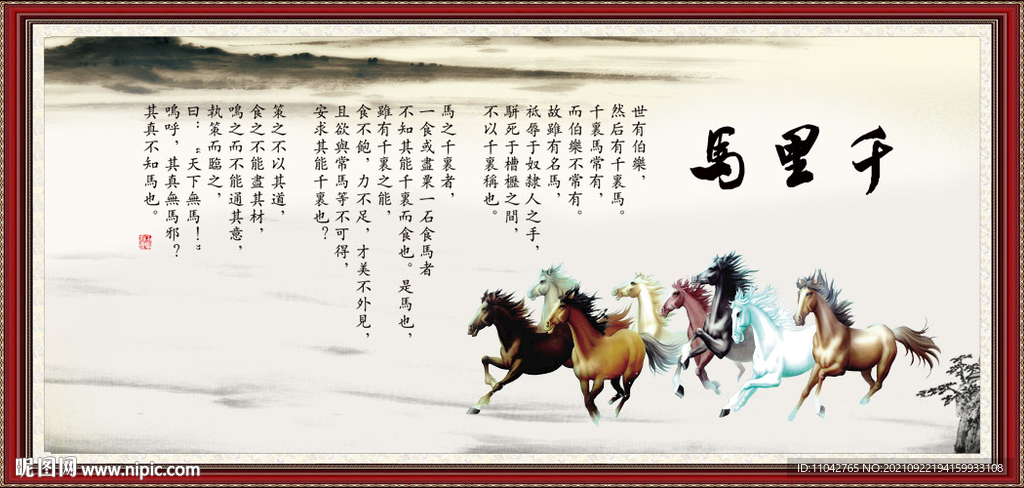 千里馬
世有伯樂，
然后有千裏馬。
千裏馬常有，
而伯樂不常有。
故雖有名馬，
祇辱于奴隸人之手，
駢死于槽櫪之間，
不以千裏稱也。
馬之千裏者，
一食或盡粟一石食馬者
不知其能千裏而食也。是馬也，
雖有千裏之能，
食不飽，力不足，才美不外見，
且欲與常馬等不可得，
安求其能千裏也？
策之不以其道，
食之不能盡其材，
鳴之而不能通其意，
執策而臨之，
曰：“天下無馬！”
嗚呼，其真無馬邪？
其真不知馬也。
昵图网 www.nipic.com
ID:11042765 NO:20210922194159933108